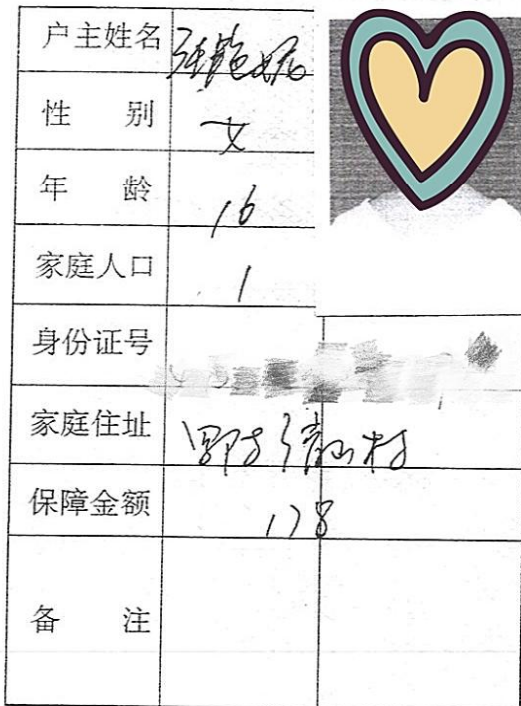 户主姓名
性 别 女
年 龄 16
家庭人口 1
身份证号
家庭住址 村
保障金额 178
备 注